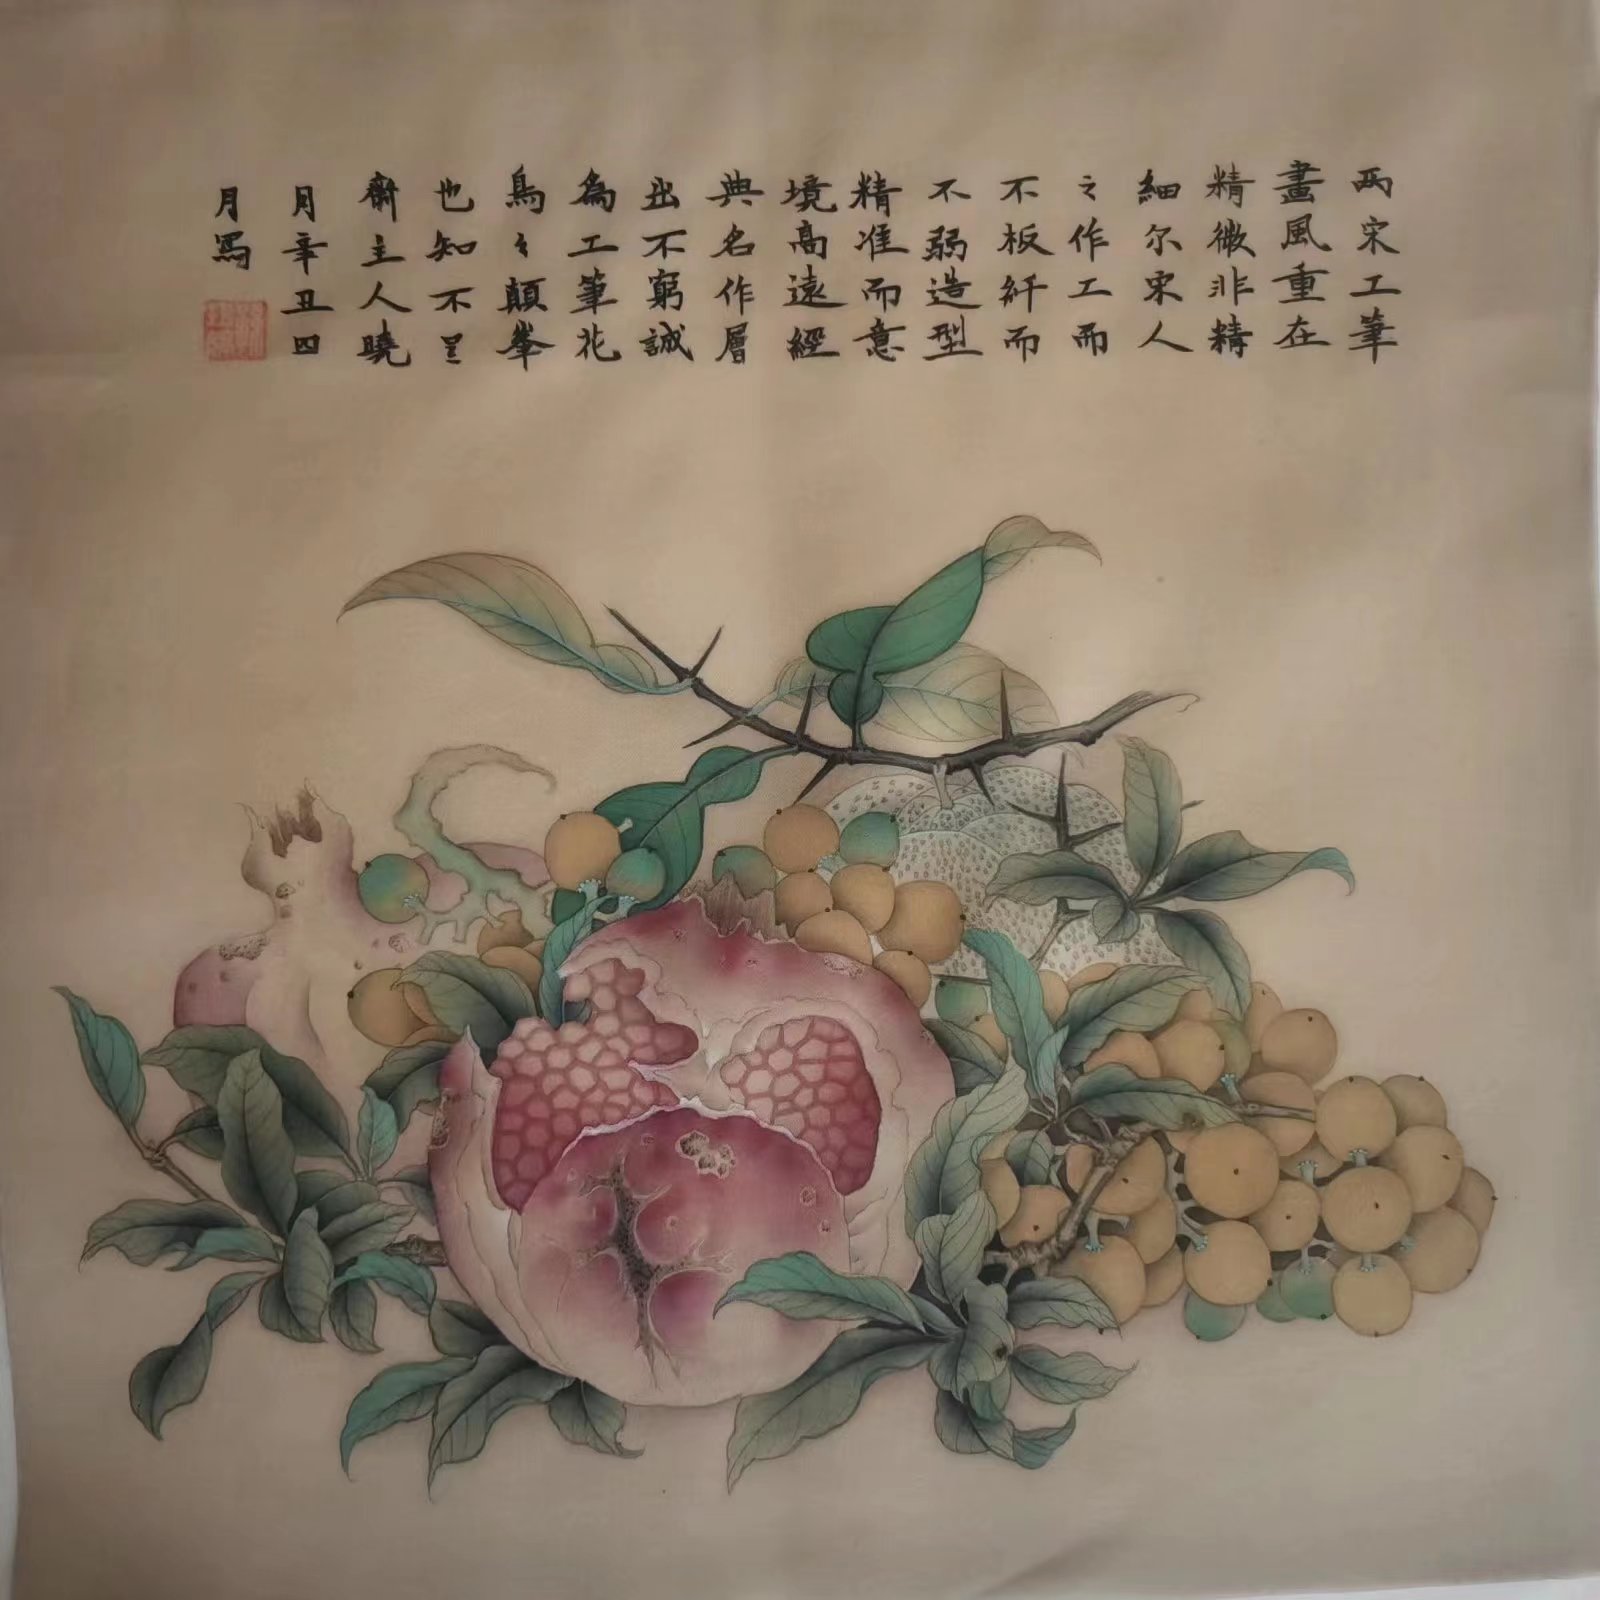 两宋工筆
畫風重在
精微非精
細尔宋人
之作工而
不板纤而
不弱造型
精准而意
境高遠經
典名作層
出不窮誠
為工筆花
鳥之顛峯
也知不足
齋主人曉
月辛丑四
月寫